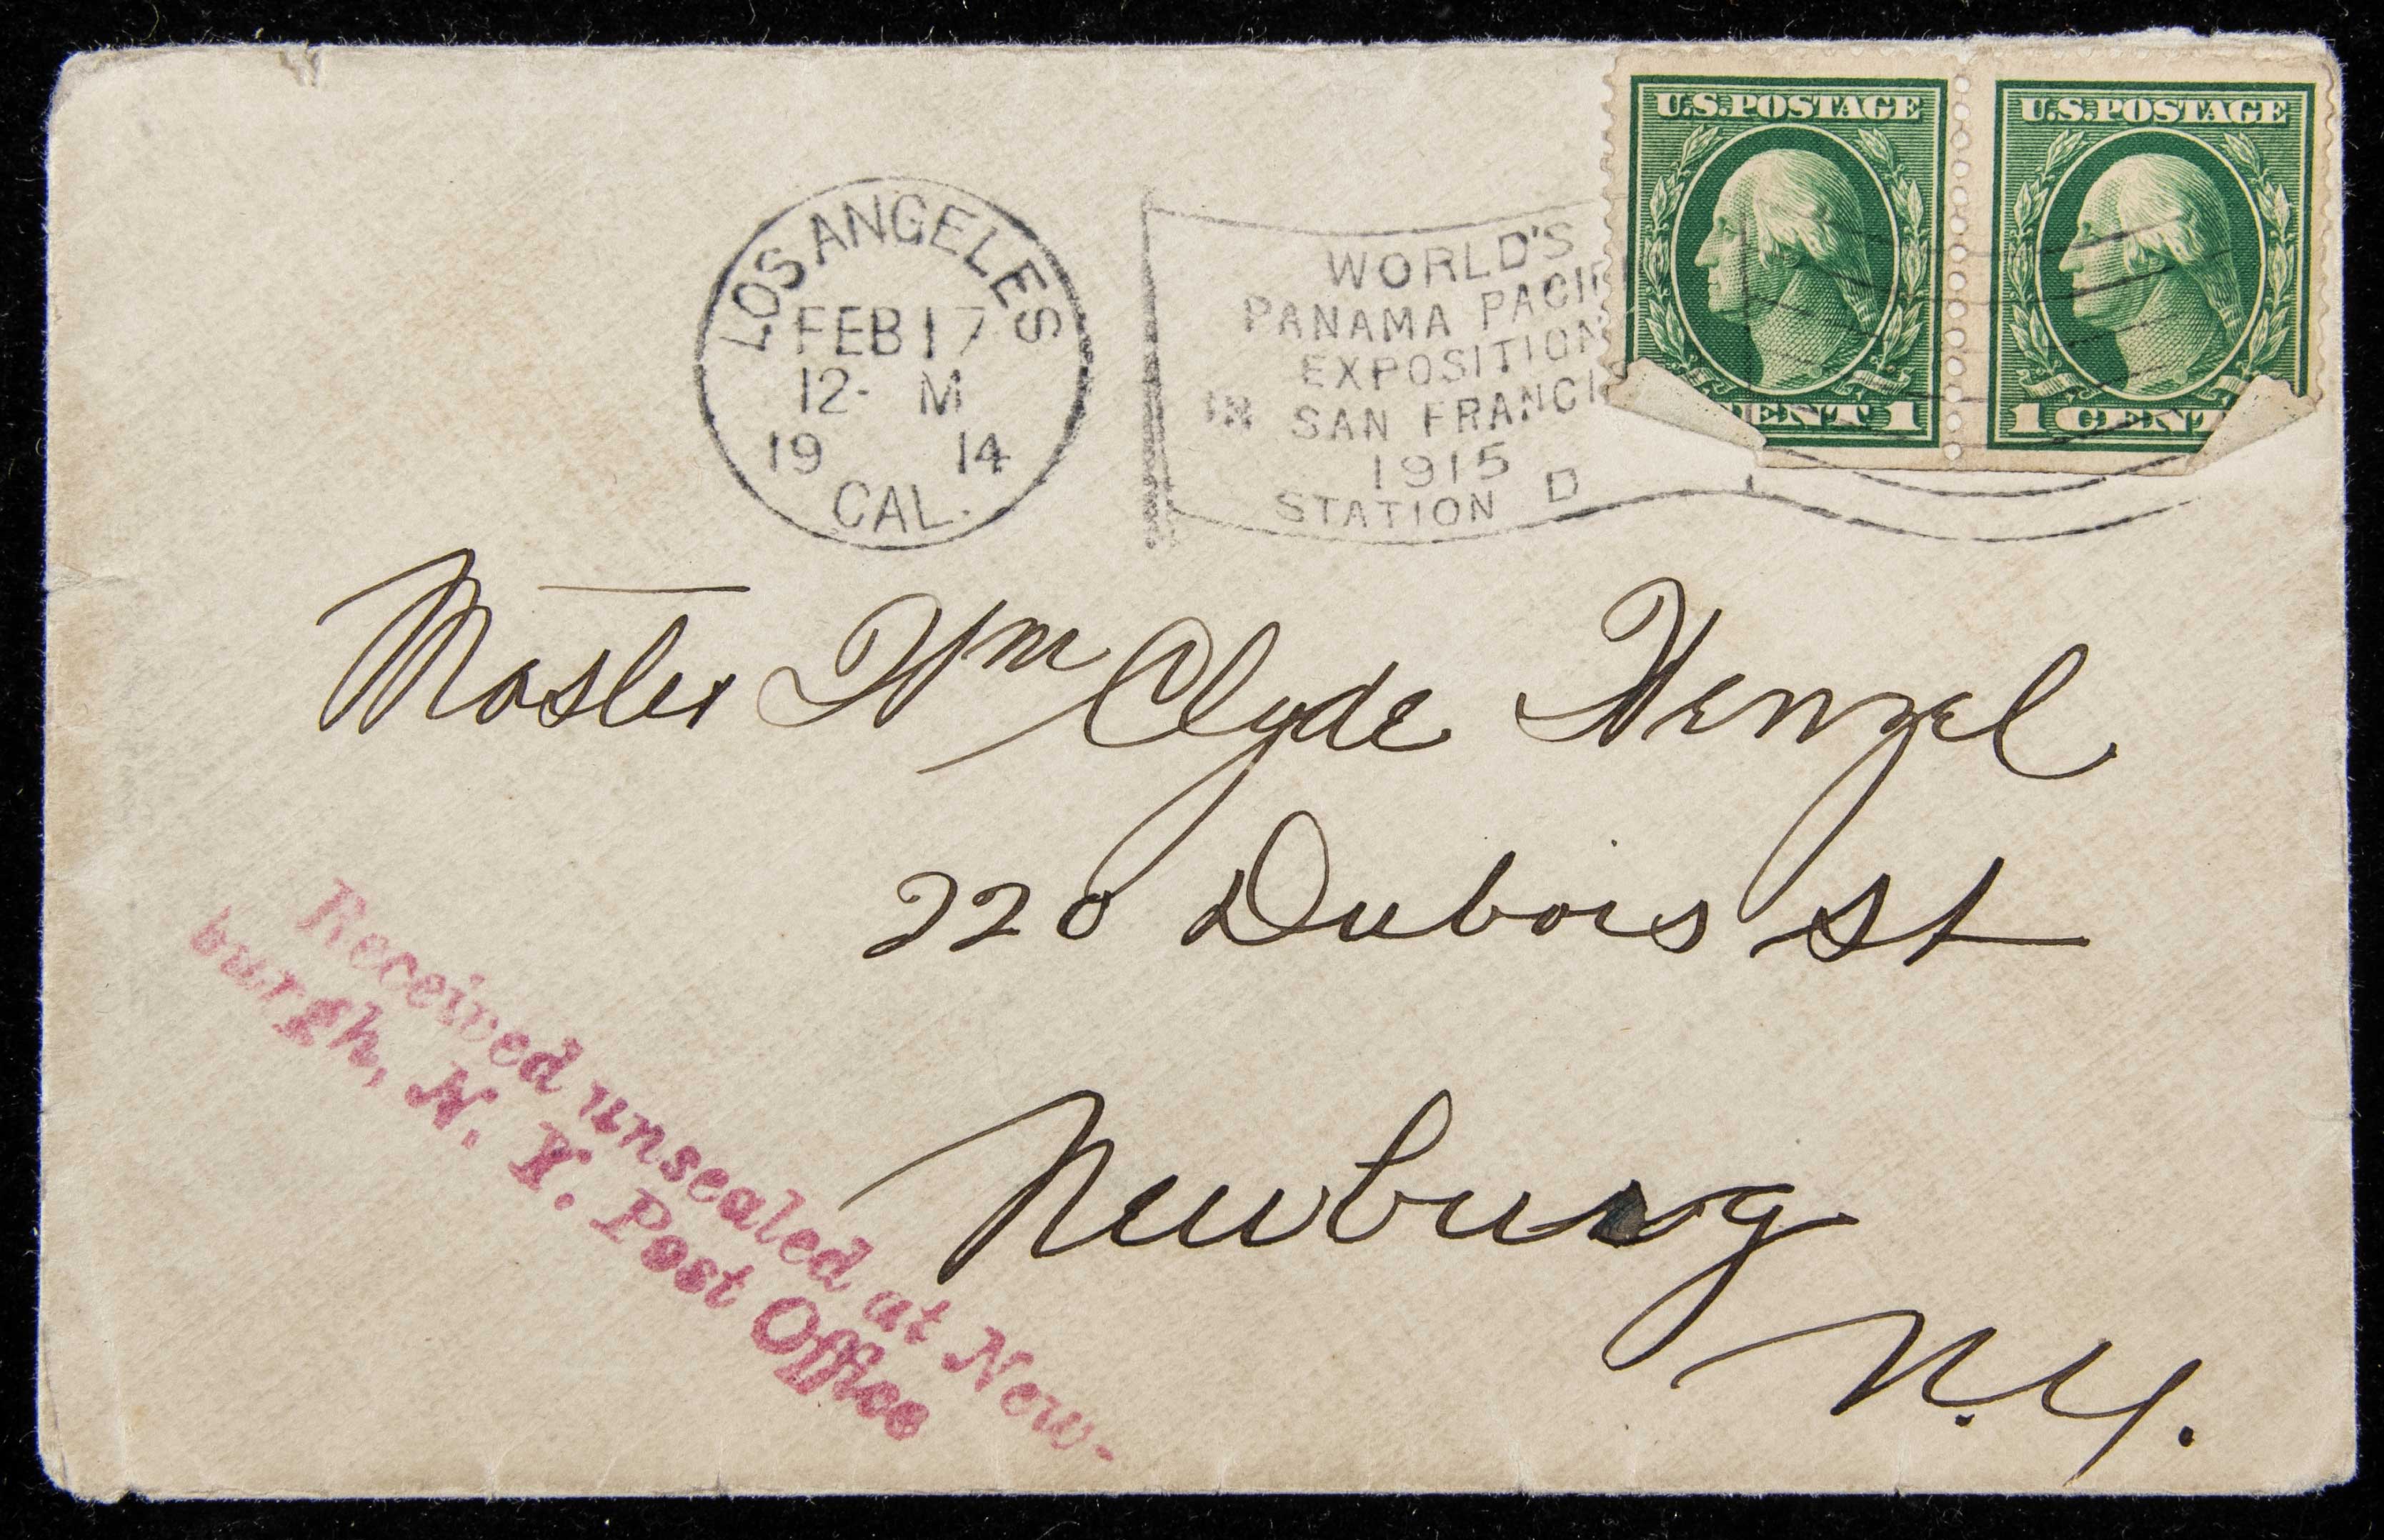 U.S. POSTAGE U.S. POSTAGE
CENT 1 1 CENT
LOS ANGELES
FEB 17
12- M
19 14
CAL.
WORLD'S
PANAMA PACIF
EXPOSITION
IN SAN FRANCIS
1915
STATION D
Master Wm Clyde Wenzel
220 Dubois St
Newburg
N.Y.
Received unsealed at New-
burgh, N. Y. Post Office